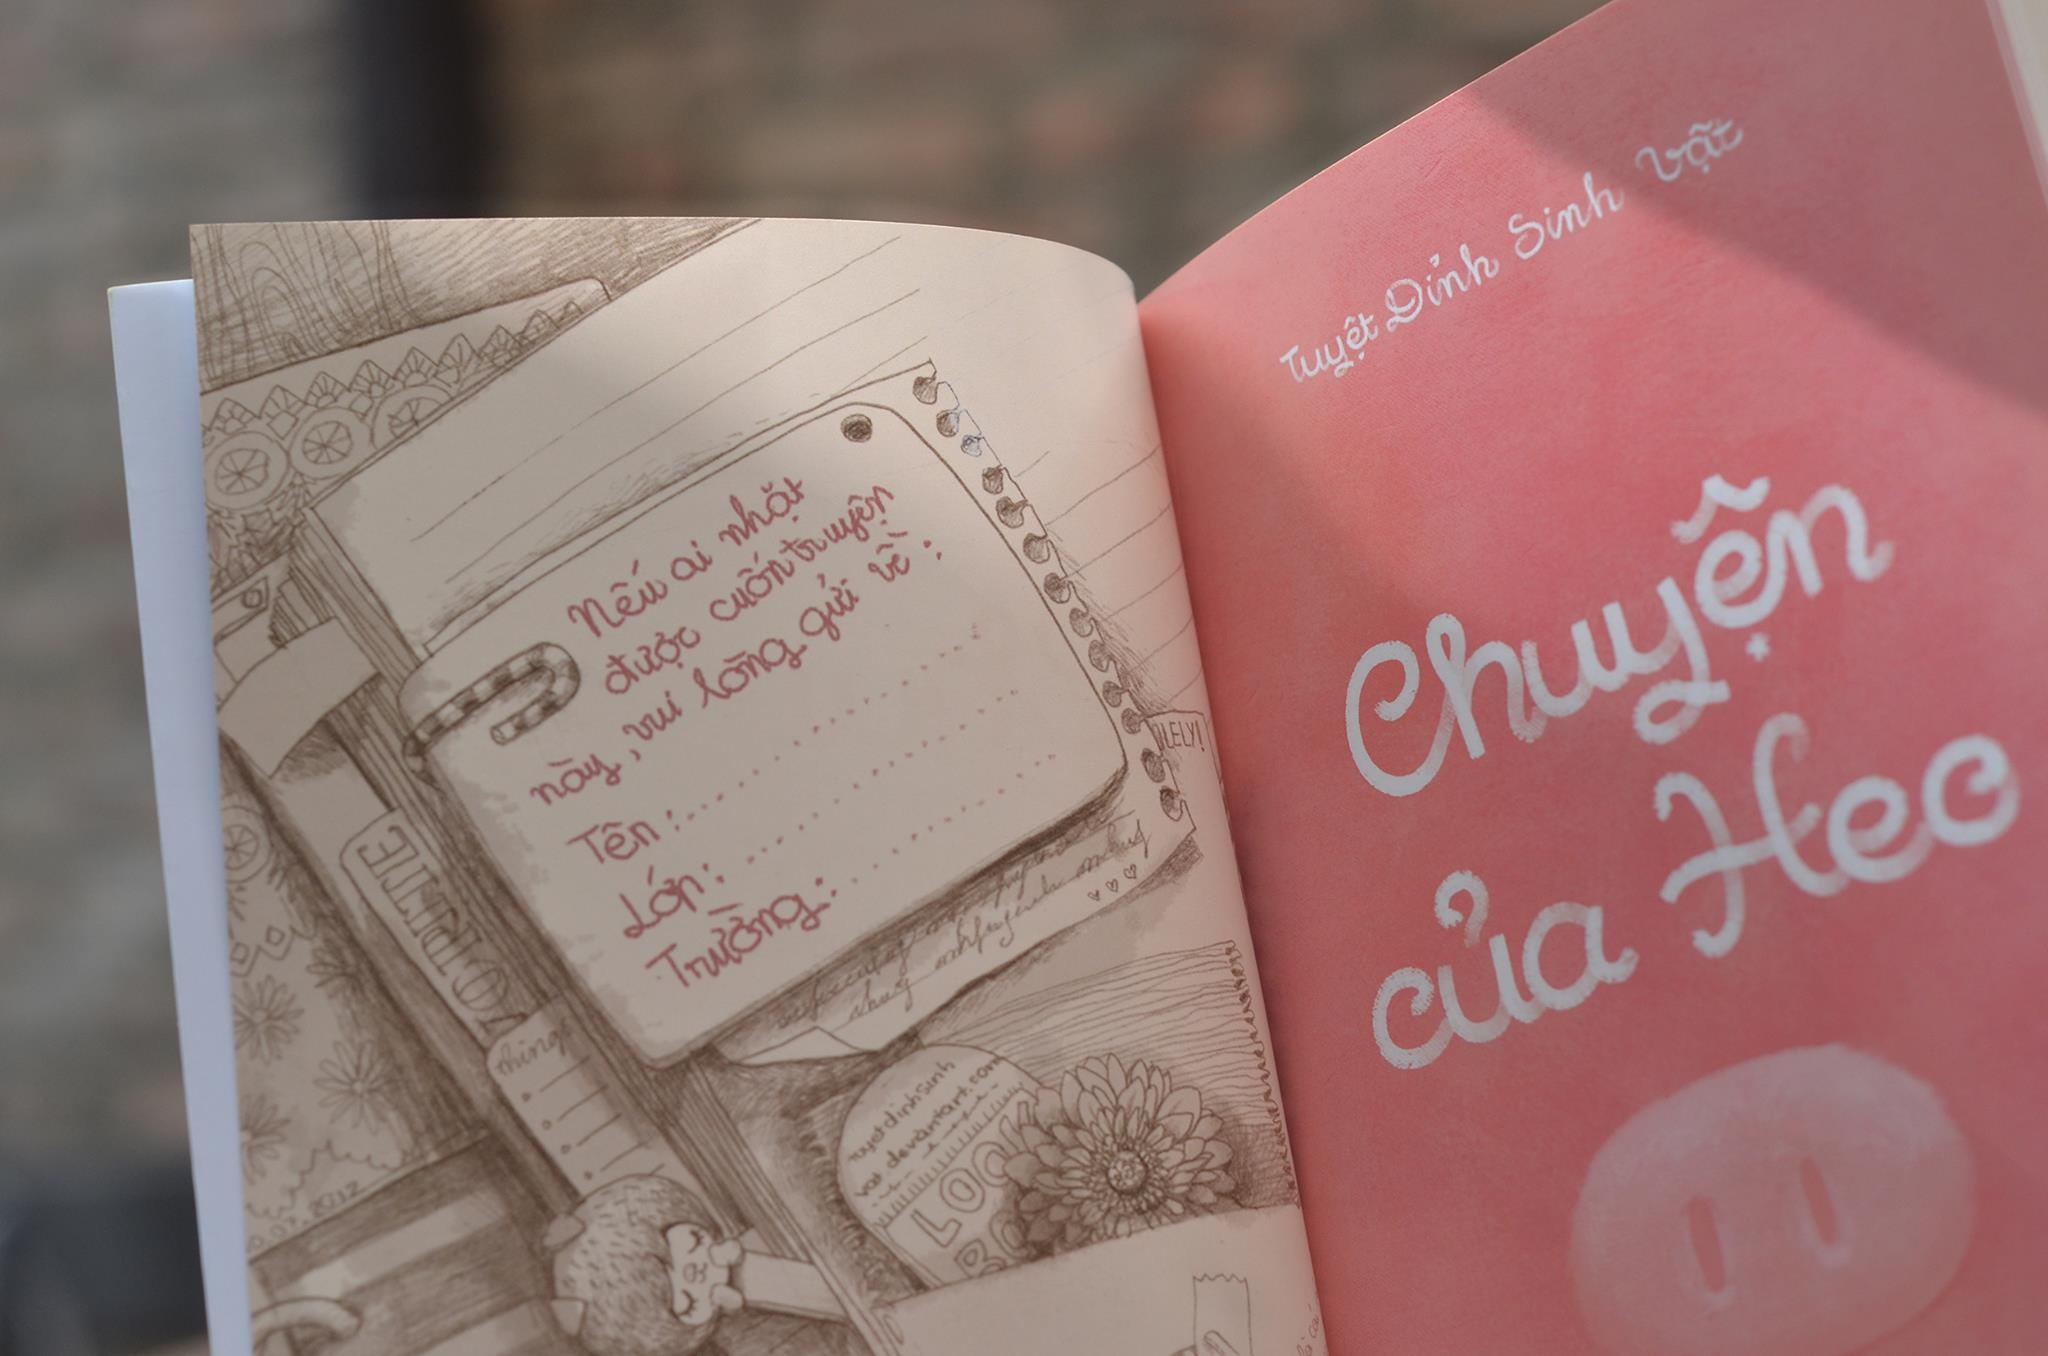 Nếu ai nhặt
được cuốn truyện
này, vui lòng gửi về:
Tên:
Lớp:
Trường:
LELY!
things
tuyetdinhsinh
vat.deviantart.com
LOO
07.2012
Tuyệt Đỉnh Sinh Vật
Chuyện
của Hec